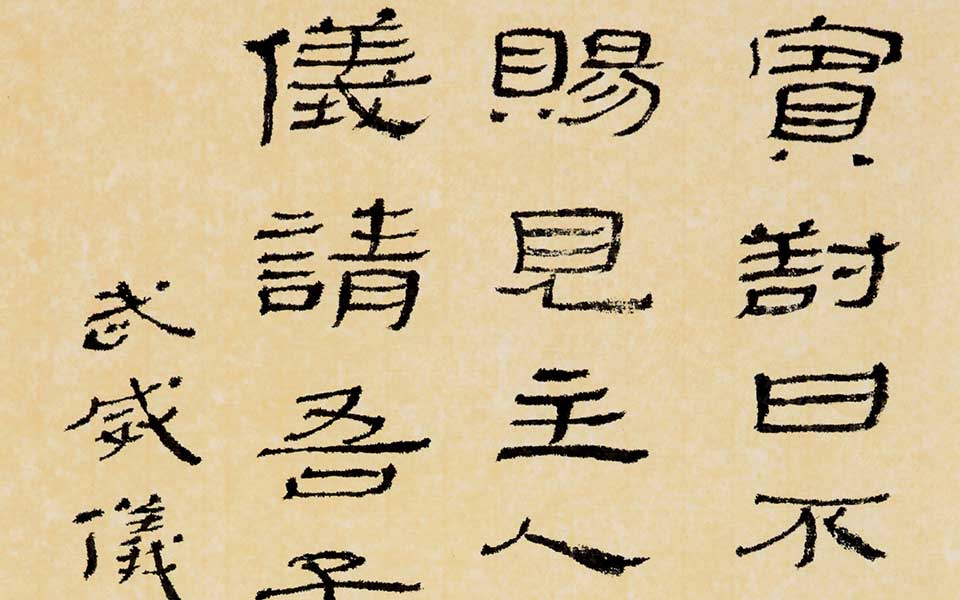 賓對曰不
賜見主人
儀請吾子
武威儀